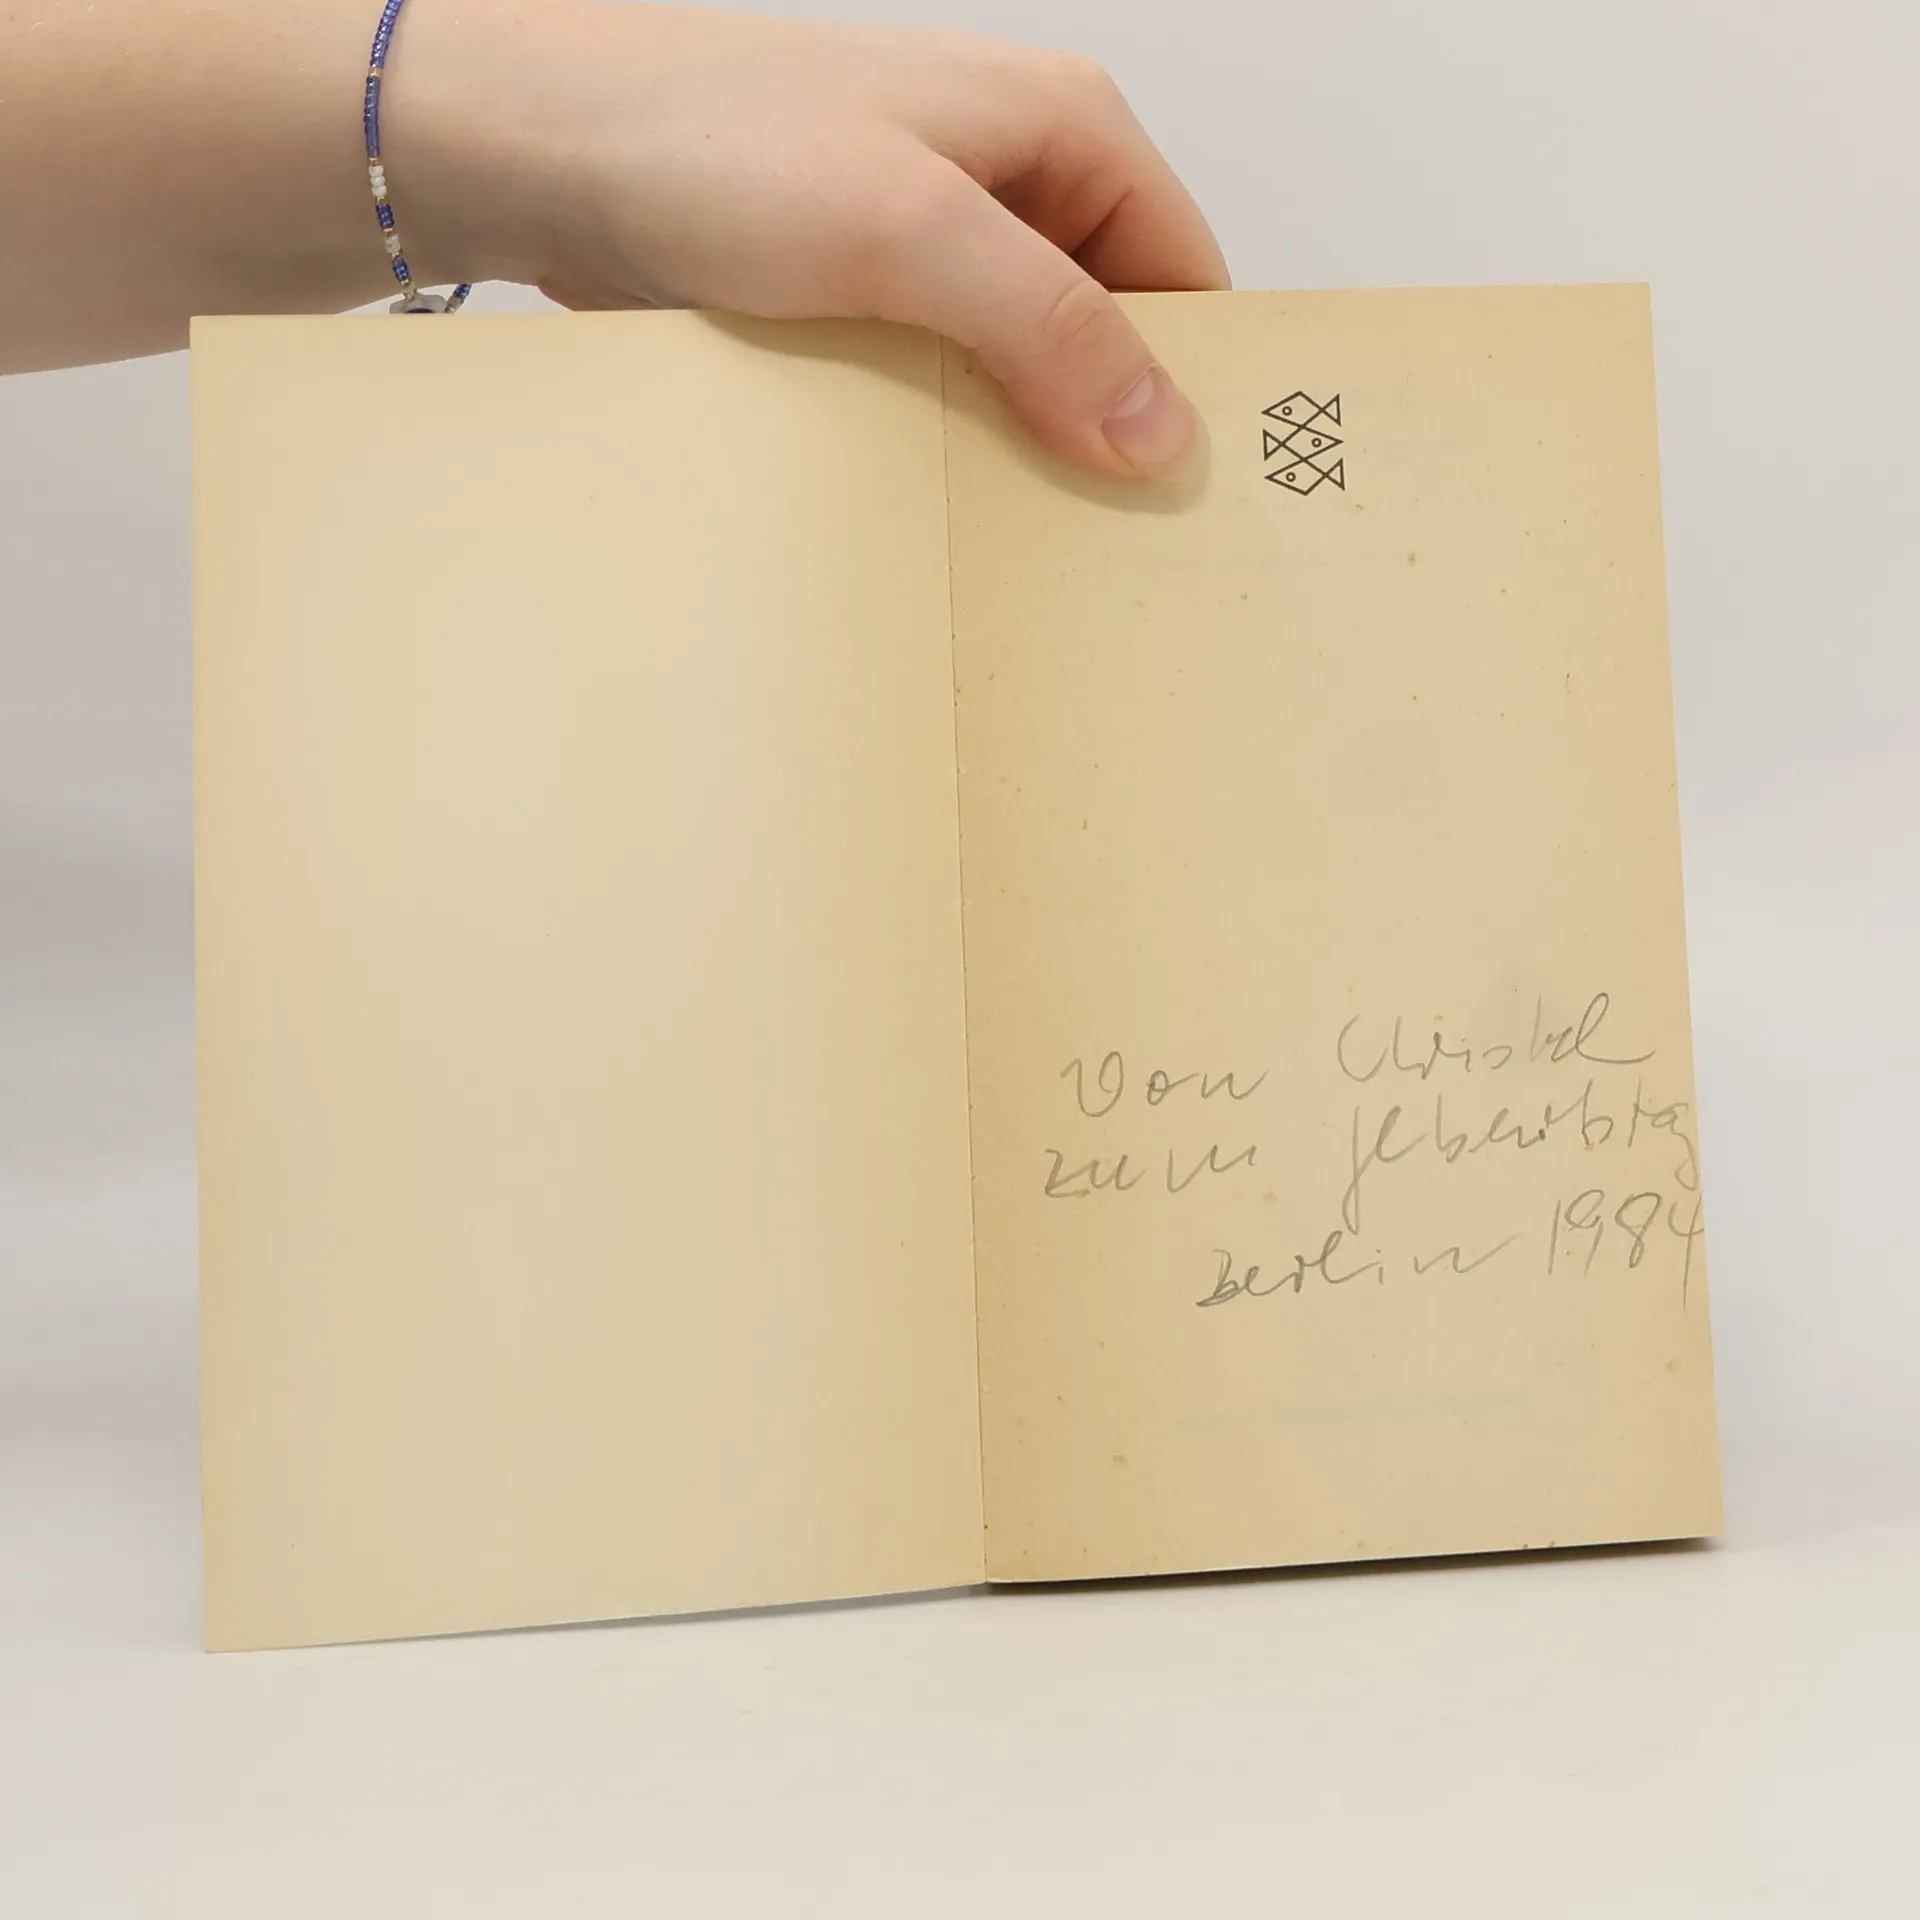 Von Christel
zum Geburtstag
Berlin 1984